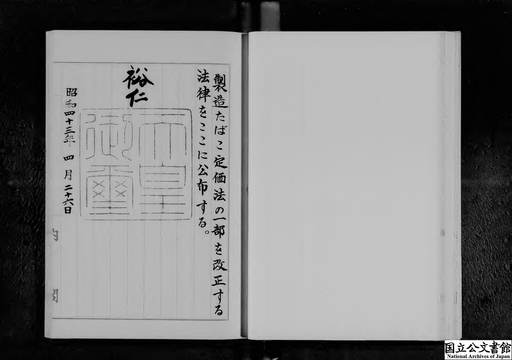 製造たばこ定価法の一部を改正する
法律をここに公布する。
裕仁
天皇
御璽
昭和四十三年四月二十六日
内閣
国立公文書館
National Archives of Japan